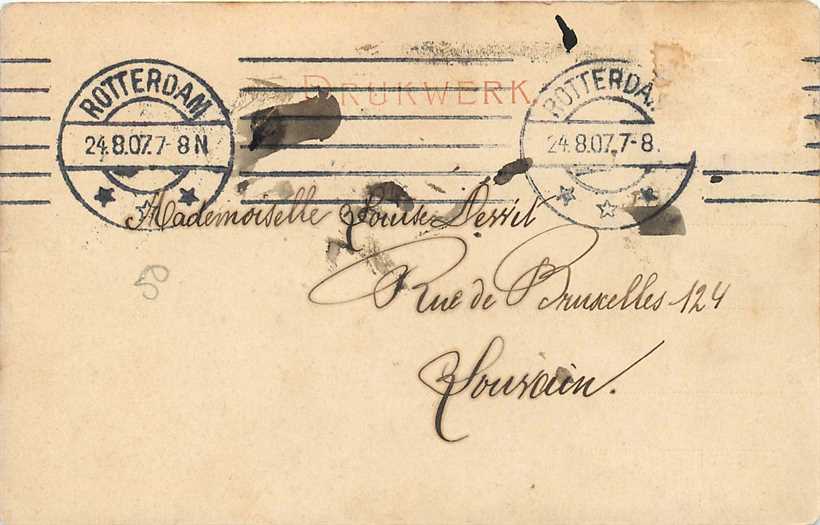 ROTTERDAM
24.8.07.7-8N
DRUKWERK
ROTTERDA
24.8.07.7-8.
Mademoiselle Louise
Rue de Bruxelles 124
Louvain.
50